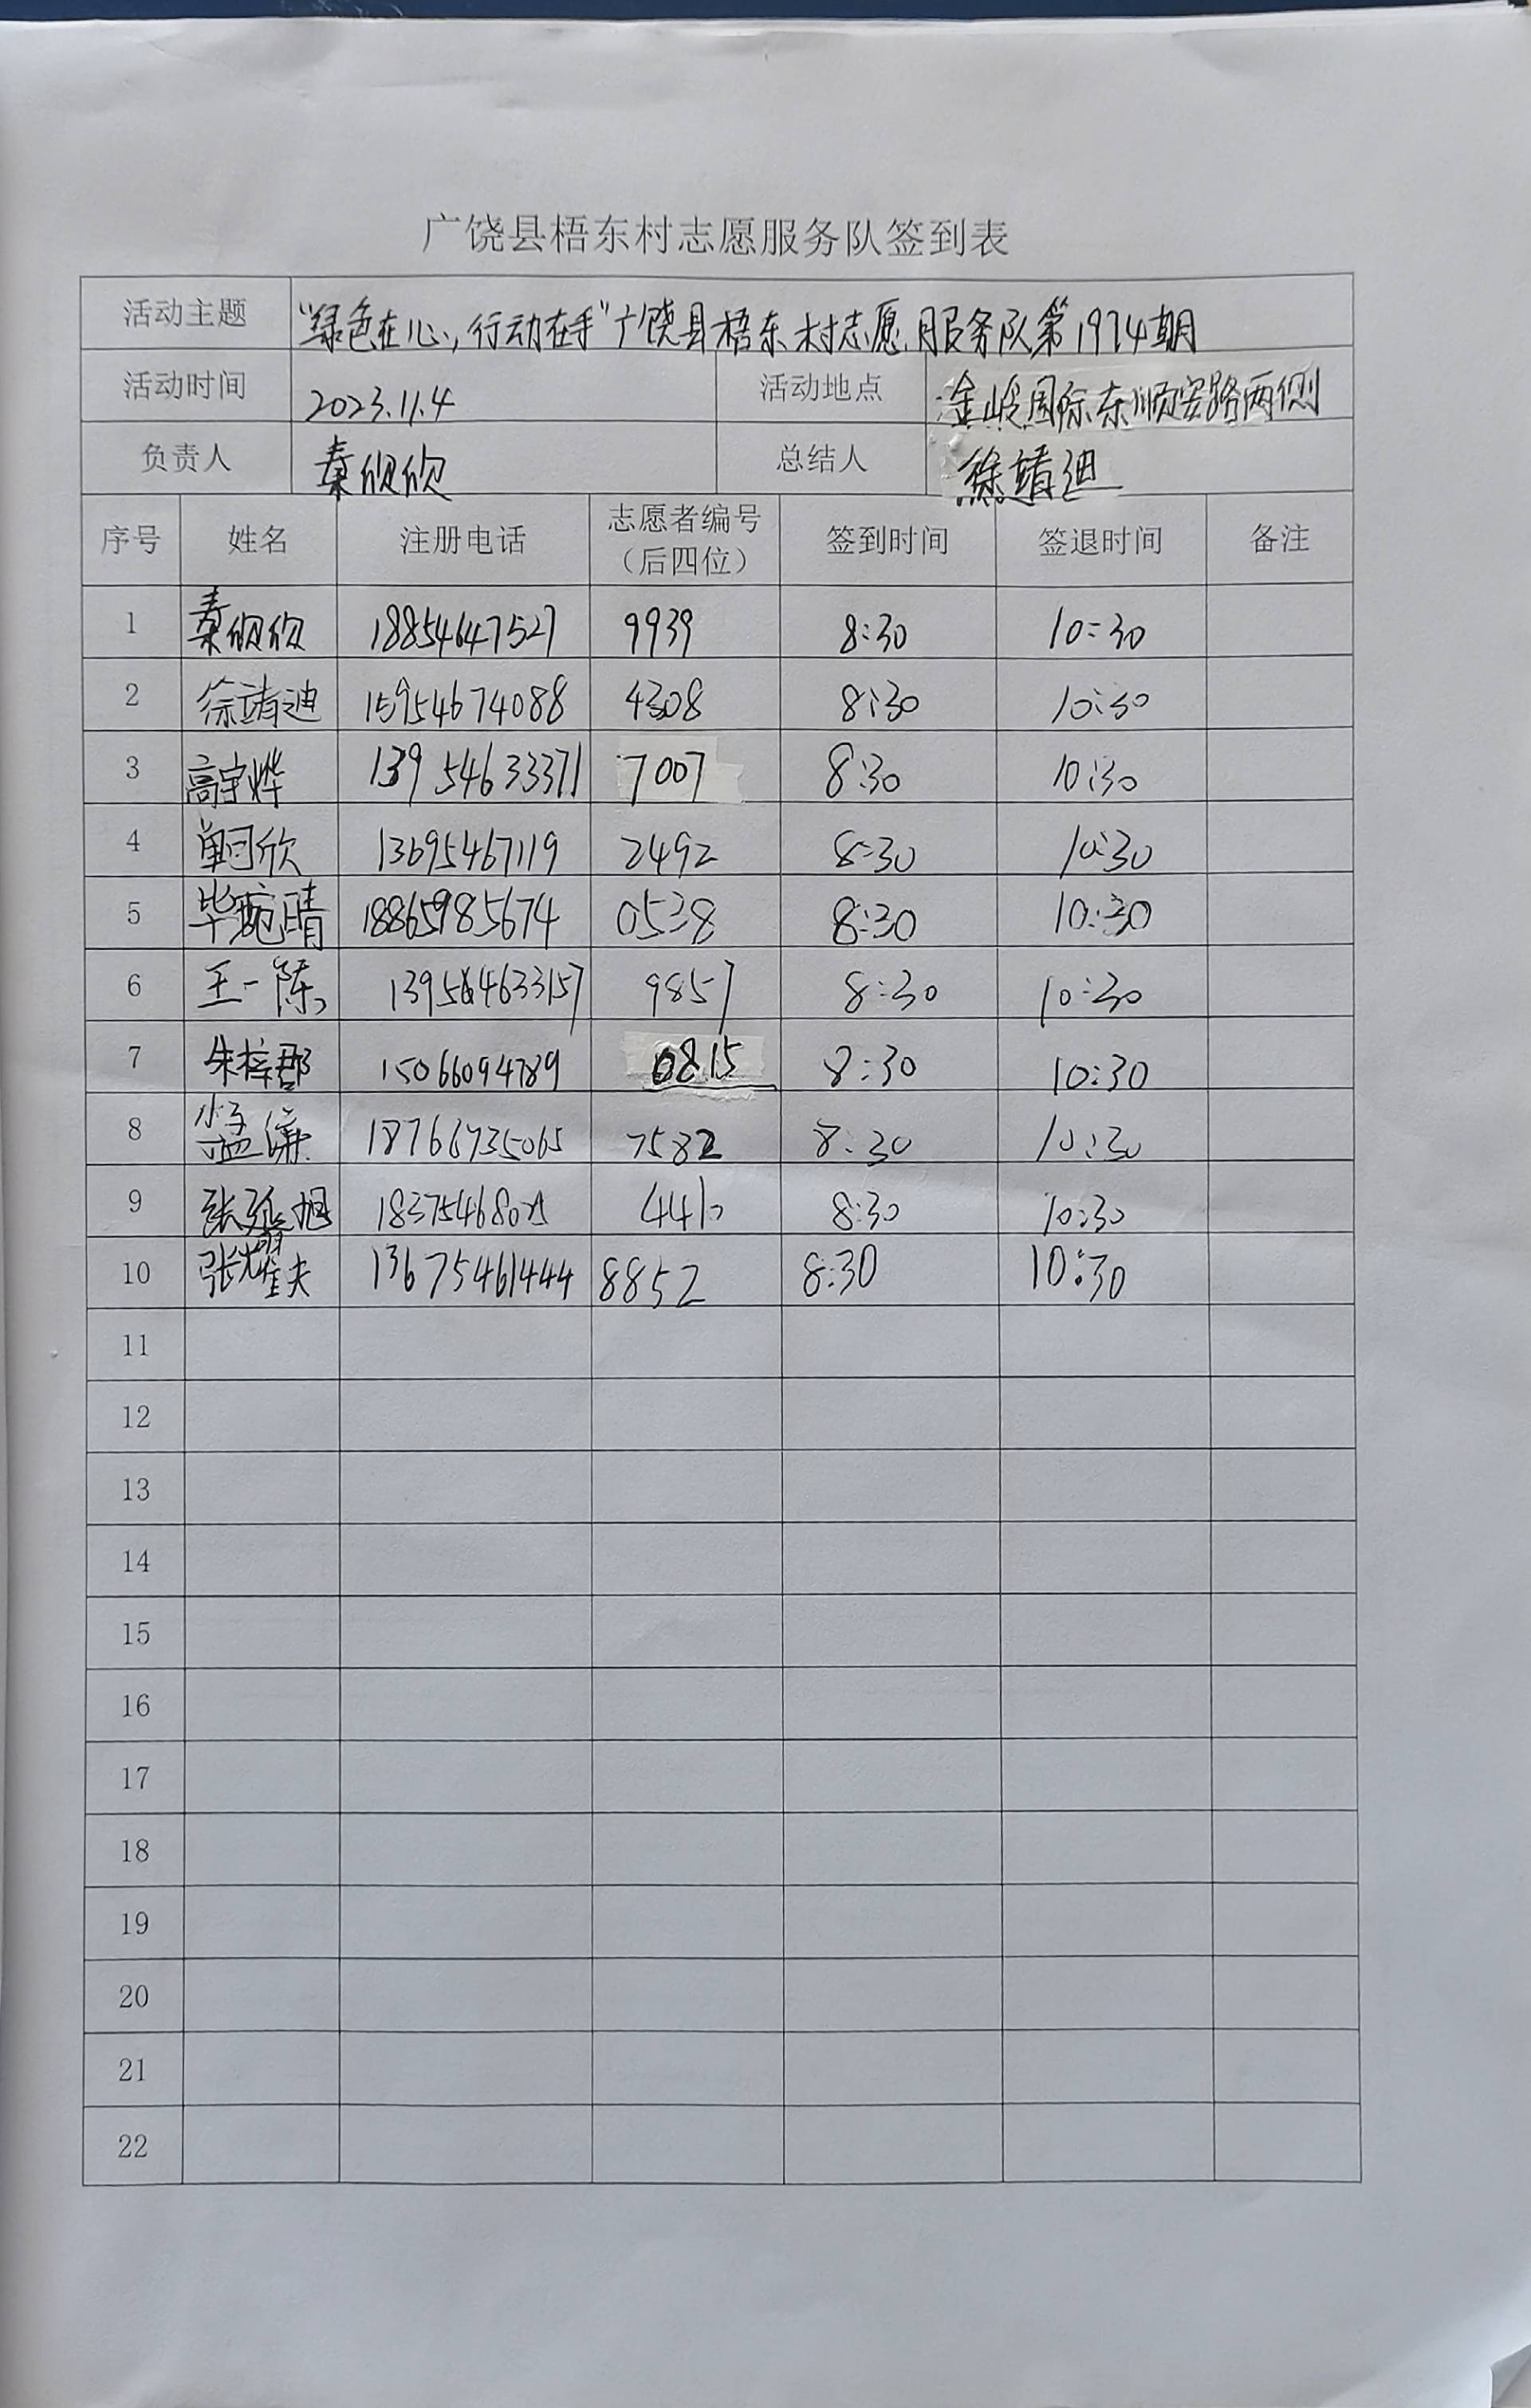 广饶县梧东村志愿服务队签到表
活动主题 “绿色在心,行动在手”广饶县梧东村志愿服务队第1974期
活动时间 2023.11.4 活动地点 金岭国际东顺安路两侧
负责人 秦欣欣 总结人 徐靖迪
序号 姓名 注册电话 志愿者编号（后四位） 签到时间 签退时间 备注
1 秦欣欣 18854647527 9939 8:30 10:30
2 徐靖迪 15954674088 4308 8:30 10:30
3 高宇烨 13954633371 7007 8:30 10:30
4 单司欣 13695467119 2492 8:30 10:30
5 毕琬晴 18865985674 0538 8:30 10:30
6 王一陈 9857 8:30 10:30
7 朱梓郡 15066094789 0815 8:30 10:30
8 孟 18766735065 7582 8:30 10:30
9 张 旭 8:30 10:30
10 张耀夫 13675461444 8852 8:30 10:30
11
12
13
14
15
16
17
18
19
20
21
22